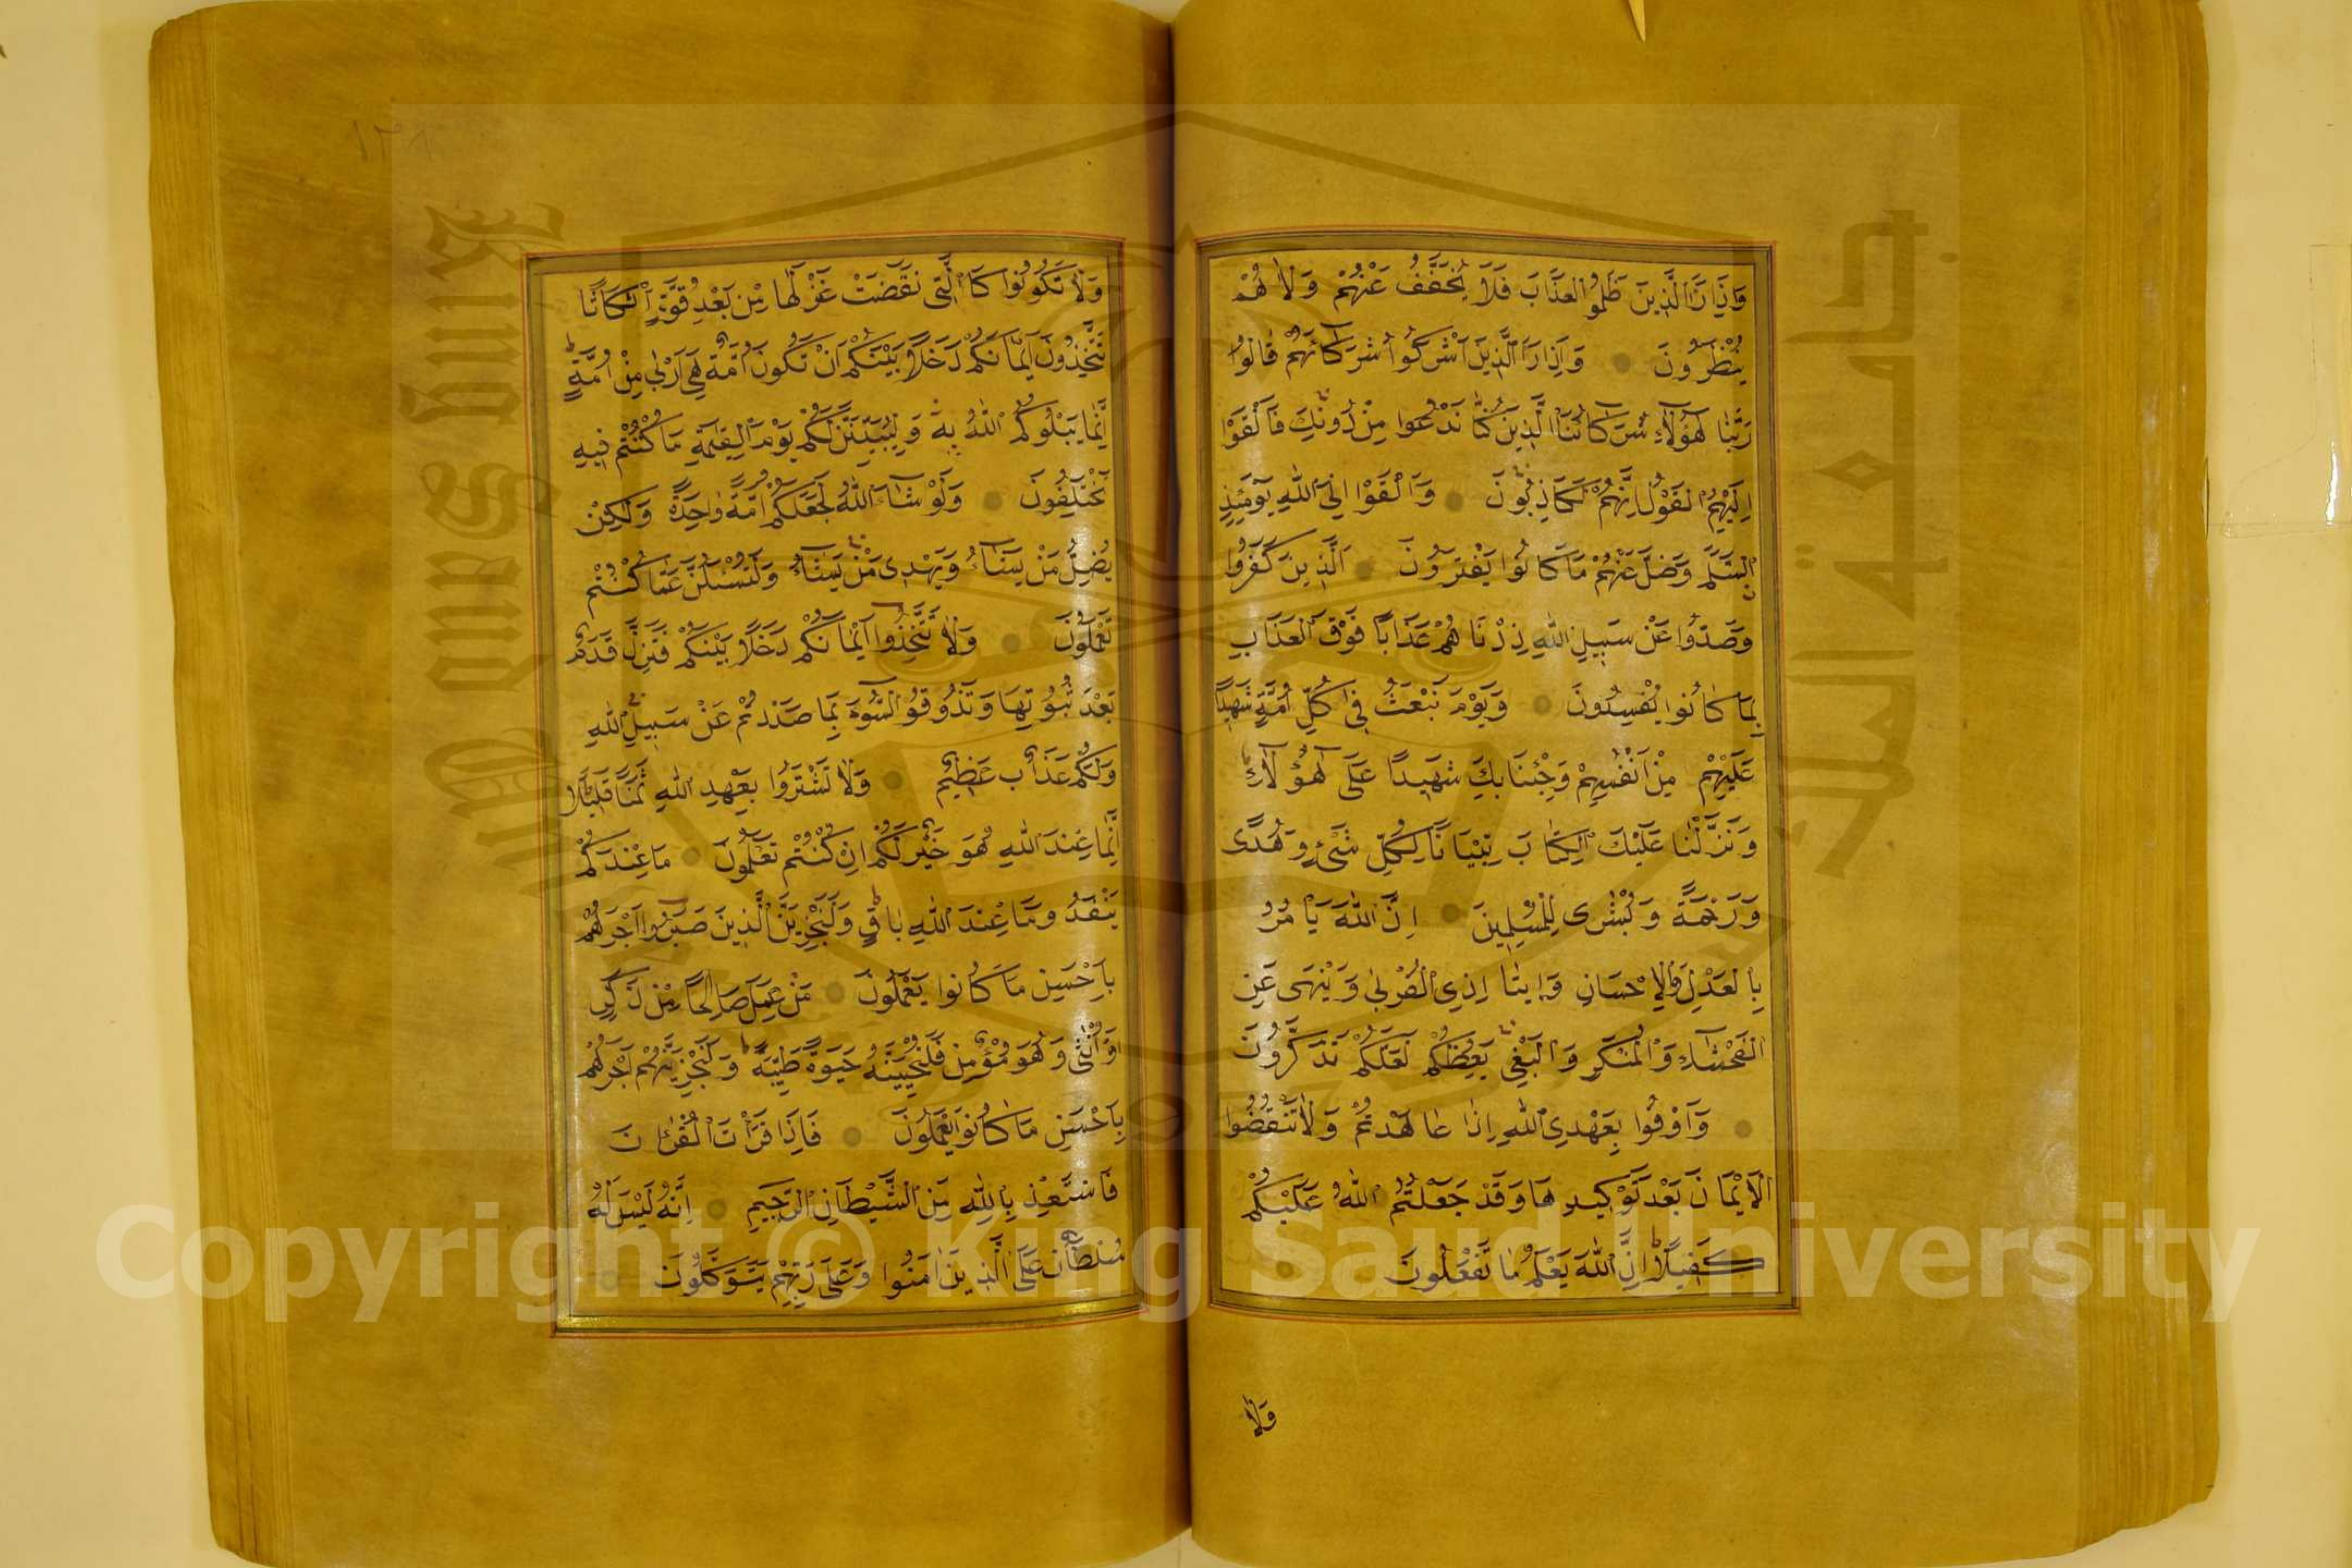 وَإِذَا رَاَ الَّذِينَ ظَلَمُوا الْعَذَابَ فَلَا يُخَفَّفُ عَنْهُمْ وَلَا هُمْ
يُنْظَرُونَ وَاِذَا رَاَ الَّذِينَ اَشْرَكُوا شُرَكَاءَهُمْ قَالُوا
رَبَّنَا هٰؤُلَاءِ شُرَكَاؤُنَا الَّذِينَ كُنَّا نَدْعُوا مِنْ دُونِكَ فَاَلْقَوْا
اِلَيْهِمُ الْقَوْلَ اِنَّكُمْ لَكَاذِبُونَ وَاَلْقَوْا اِلَى اللهِ يَوْمَئِذٍ
السَّلَمَ وَضَلَّ عَنْهُمْ مَا كَانُوا يَفْتَرُونَ اَلَّذِينَ كَفَرُوا
وَصَدُّوا عَنْ سَبِيلِ اللهِ زِدْنَاهُمْ عَذَابًا فَوْقَ الْعَذَابِ
بِمَا كَانُوا يُفْسِدُونَ وَيَوْمَ نَبْعَثُ فِي كُلِّ اُمَّةٍ شَهِيدًا
عَلَيْهِمْ مِنْ اَنْفُسِهِمْ وَجِئْنَا بِكَ شَهِيدًا عَلَى هٰؤُلَاءِ
وَنَزَّلْنَا عَلَيْكَ الْكِتَابَ تِبْيَانًا لِكُلِّ شَيْءٍ وَهُدًى
وَرَحْمَةً وَبُشْرَى لِلْمُسْلِمِينَ اِنَّ اللهَ يَاْمُرُ
بِالْعَدْلِ وَالْاِحْسَانِ وَاِيتَاِ ذِي الْقُرْبٰى وَيَنْهَى عَنِ
الْفَحْشَاءِ وَالْمُنْكَرِ وَالْبَغْيِ يَعِظُكُمْ لَعَلَّكُمْ تَذَكَّرُونَ
وَاَوْفُوا بِعَهْدِ اللهِ اِذَا عَاهَدْتُمْ وَلَا تَنْقُضُوا
الْاَيْمَانَ بَعْدَ تَوْكِيدِهَا وَقَدْ جَعَلْتُمُ اللهَ عَلَيْكُمْ
كَفِيلًا اِنَّ اللهَ يَعْلَمُ مَا تَفْعَلُونَ
وَلَا
١٣٨
وَلَا تَكُونُوا كَالَّتِي نَقَضَتْ غَزْلَهَا مِنْ بَعْدِ قُوَّةٍ اَنْكَاثًا
تَتَّخِذُونَ اَيْمَانَكُمْ دَخَلًا بَيْنَكُمْ اَنْ تَكُونَ اُمَّةٌ هِيَ اَرْبٰى مِنْ اُمَّةٍ
اِنَّمَا يَبْلُوكُمُ اللهُ بِهِ وَلَيُبَيِّنَنَّ لَكُمْ يَوْمَ الْقِيٰمَةِ مَا كُنْتُمْ فِيهِ
تَخْتَلِفُونَ وَلَوْ شَاءَ اللهُ لَجَعَلَكُمْ اُمَّةً وَاحِدَةً وَلٰكِنْ
يُضِلُّ مَنْ يَشَاءُ وَيَهْدِى مَنْ يَشَاءُ وَلَتُسْئَلُنَّ عَمَّا كُنْتُمْ
تَعْمَلُونَ وَلَا تَتَّخِذُوا اَيْمَانَكُمْ دَخَلًا بَيْنَكُمْ فَتَزِلَّ قَدَمٌ
بَعْدَ ثُبُوتِهَا وَتَذُوقُوا السُّوءَ بِمَا صَدَدْتُمْ عَنْ سَبِيلِ اللهِ
وَلَكُمْ عَذَابٌ عَظِيمٌ وَلَا تَشْتَرُوا بِعَهْدِ اللهِ ثَمَنًا قَلِيلًا
اِنَّمَا عِنْدَ اللهِ هُوَ خَيْرٌ لَكُمْ اِنْ كُنْتُمْ تَعْلَمُونَ مَا عِنْدَكُمْ
يَنْفَدُ وَمَا عِنْدَ اللهِ بَاقٍ وَلَنَجْزِيَنَّ الَّذِينَ صَبَرُوا اَجْرَهُمْ
بِاَحْسَنِ مَا كَانُوا يَعْمَلُونَ مَنْ عَمِلَ صَالِحًا مِنْ ذَكَرٍ
اَوْ اُنْثٰى وَهُوَ مُؤْمِنٌ فَلَنُحْيِيَنَّهُ حَيٰوةً طَيِّبَةً وَلَنَجْزِيَنَّهُمْ اَجْرَهُمْ
بِاَحْسَنِ مَا كَانُوا يَعْمَلُونَ فَاِذَا قَرَاْتَ الْقُرْاٰنَ
فَاسْتَعِذْ بِاللهِ مِنَ الشَّيْطَانِ الرَّجِيمِ اِنَّهُ لَيْسَ لَهُ
سُلْطَانٌ عَلَى الَّذِينَ اٰمَنُوا وَعَلَى رَبِّهِمْ يَتَوَكَّلُونَ
جامعة الملك سعود
King Saud University
1957
Copyright © King Saud University